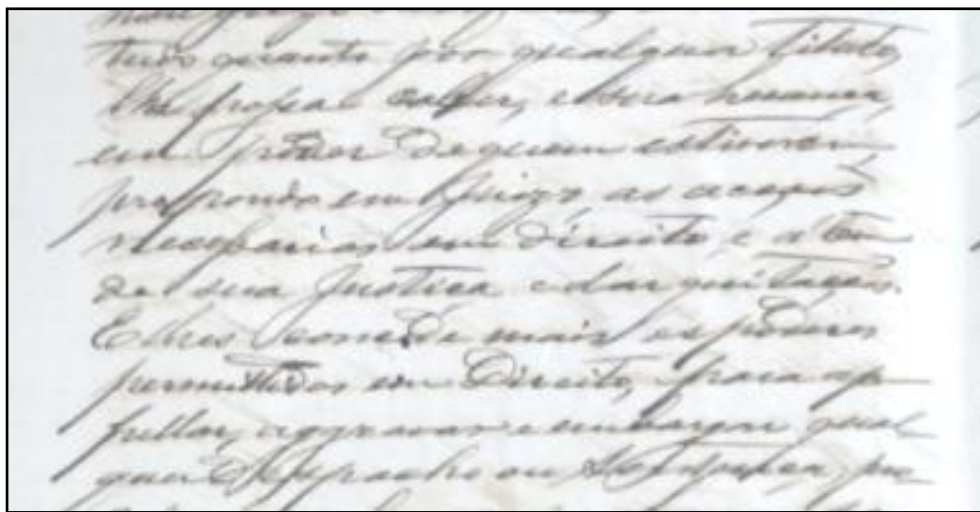 tudo quanto por qualquer titulo
lhe possa caber, e sua herança,
em poder de quem estiverem
propondo em Juizo as acções
necessarias em direito, e a bem
de sua Justiça e dar quitações.
E lhes concede mais os poderes
permittidos em Direito, para ap
pellar, aggravar e embargar qual
quer Despacho ou Sentença, pro